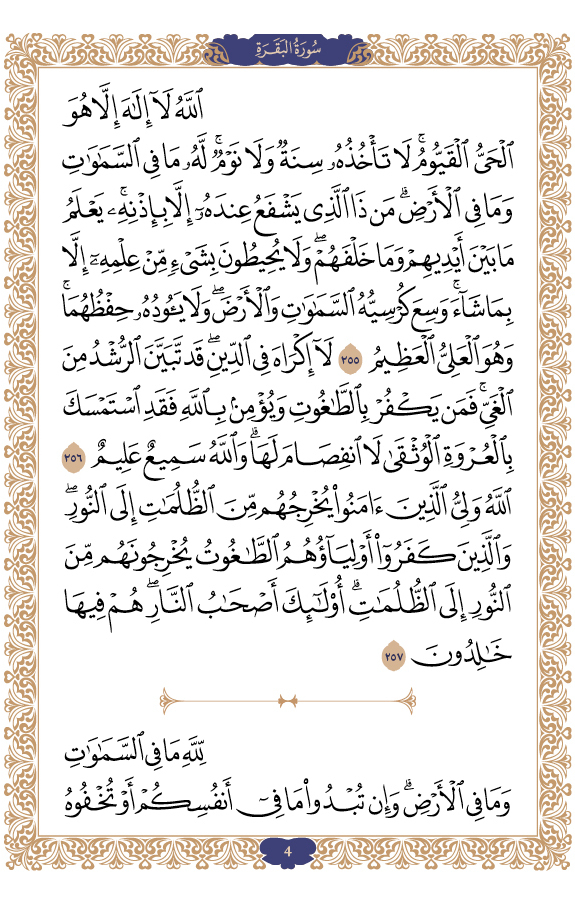 سُورَةُ البَقَرَةِ
ٱللَّهُ لَآ إِلَٰهَ إِلَّا هُوَ
ٱلْحَىُّ ٱلْقَيُّومُ ۚ لَا تَأْخُذُهُۥ سِنَةٌ وَلَا نَوْمٌ ۚ لَّهُۥ مَا فِى ٱلسَّمَٰوَٰتِ
وَمَا فِى ٱلْأَرْضِ ۗ مَن ذَا ٱلَّذِى يَشْفَعُ عِندَهُۥٓ إِلَّا بِإِذْنِهِۦ ۚ يَعْلَمُ
مَا بَيْنَ أَيْدِيهِمْ وَمَا خَلْفَهُمْ ۖ وَلَا يُحِيطُونَ بِشَىْءٍ مِّنْ عِلْمِهِۦٓ إِلَّا
بِمَا شَآءَ ۚ وَسِعَ كُرْسِيُّهُ ٱلسَّمَٰوَٰتِ وَٱلْأَرْضَ ۖ وَلَا يَـُٔودُهُۥ حِفْظُهُمَا ۚ
وَهُوَ ٱلْعَلِىُّ ٱلْعَظِيمُ ٢٥٥ لَآ إِكْرَاهَ فِى ٱلدِّينِ ۖ قَد تَّبَيَّنَ ٱلرُّشْدُ مِنَ
ٱلْغَىِّ ۚ فَمَن يَكْفُرْ بِٱلطَّٰغُوتِ وَيُؤْمِنۢ بِٱللَّهِ فَقَدِ ٱسْتَمْسَكَ
بِٱلْعُرْوَةِ ٱلْوُثْقَىٰ لَا ٱنفِصَامَ لَهَا ۗ وَٱللَّهُ سَمِيعٌ عَلِيمٌ ٢٥٦
ٱللَّهُ وَلِىُّ ٱلَّذِينَ ءَامَنُوا۟ يُخْرِجُهُم مِّنَ ٱلظُّلُمَٰتِ إِلَى ٱلنُّورِ ۖ
وَٱلَّذِينَ كَفَرُوٓا۟ أَوْلِيَآؤُهُمُ ٱلطَّٰغُوتُ يُخْرِجُونَهُم مِّنَ
ٱلنُّورِ إِلَى ٱلظُّلُمَٰتِ ۗ أُو۟لَٰٓئِكَ أَصْحَٰبُ ٱلنَّارِ ۖ هُمْ فِيهَا
خَٰلِدُونَ ٢٥٧
لِّلَّهِ مَا فِى ٱلسَّمَٰوَٰتِ
وَمَا فِى ٱلْأَرْضِ ۗ وَإِن تُبْدُوا۟ مَا فِىٓ أَنفُسِكُمْ أَوْ تُخْفُوهُ
4